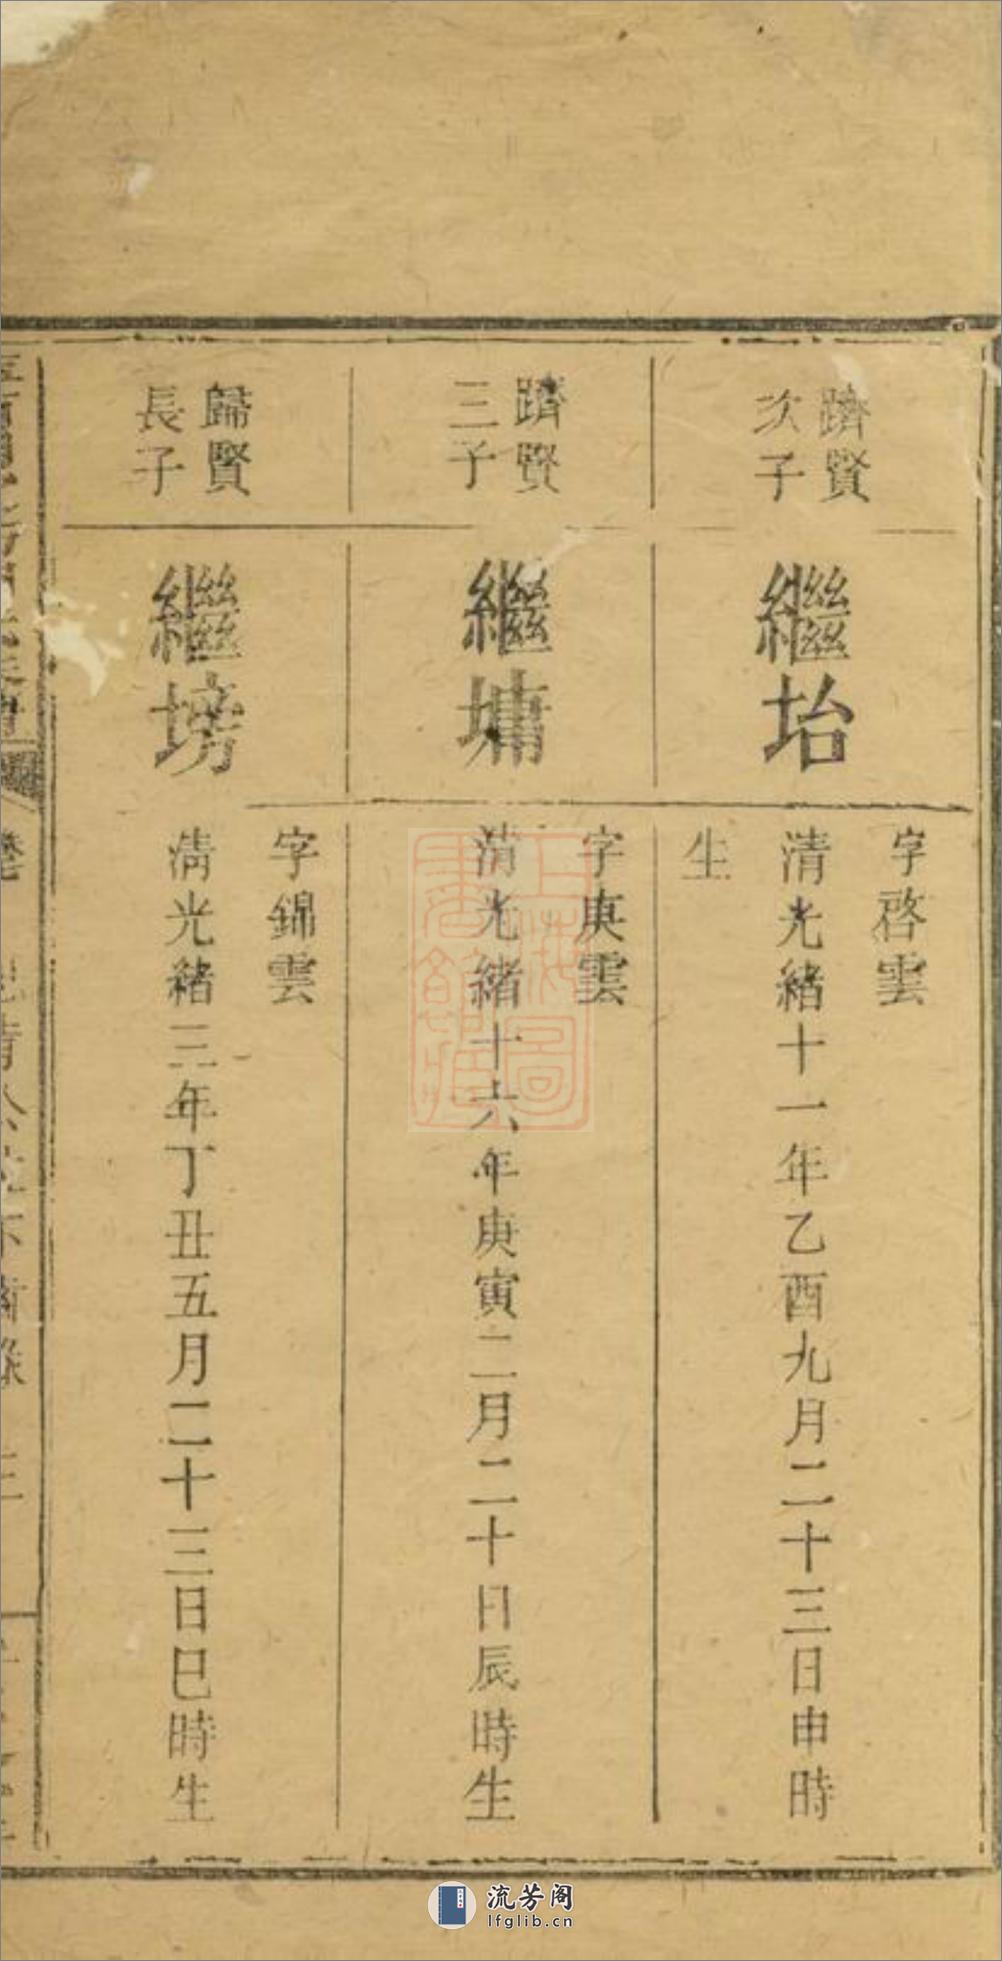 躋賢
次子
繼坮
字啓雲
清光緒十一年乙酉九月二十三日申時
生
躋賢
三子
繼墉
字庚雲
清光緒十六年庚寅二月二十日辰時生
歸賢
長子
繼塝
字錦雲
清光緒三年丁丑五月二十三日巳時生
上海圖
書館藏
流芳阁
lfglib.cn